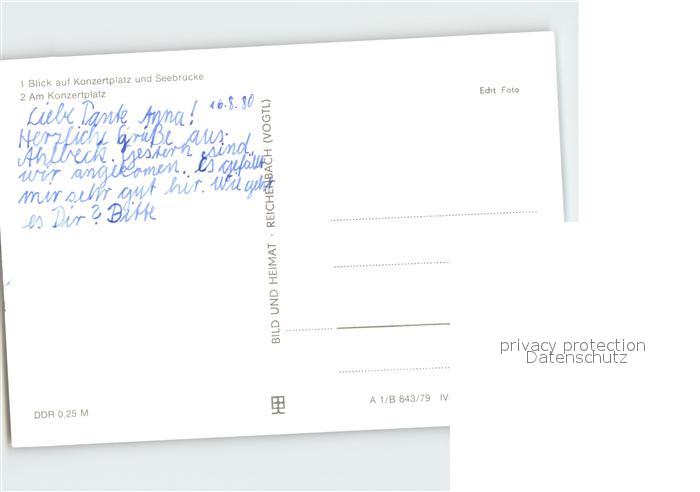 1 Blick auf Konzertplatz und Seebrücke
2 Am Konzertplatz
Liebe Tante Anna! 16.8.80
Herzliche Grüße aus
Ahlbeck. Gestern sind
wir angekomen. Es gefällt
mir sehr gut hir. Wie geht
es Dir? Bitte
BILD UND HEIMAT · REICHENBACH (VOGTL)
Echt Foto
privacy protection
Datenschutz
DDR 0,25 M
A 1/B 843/79 IV-